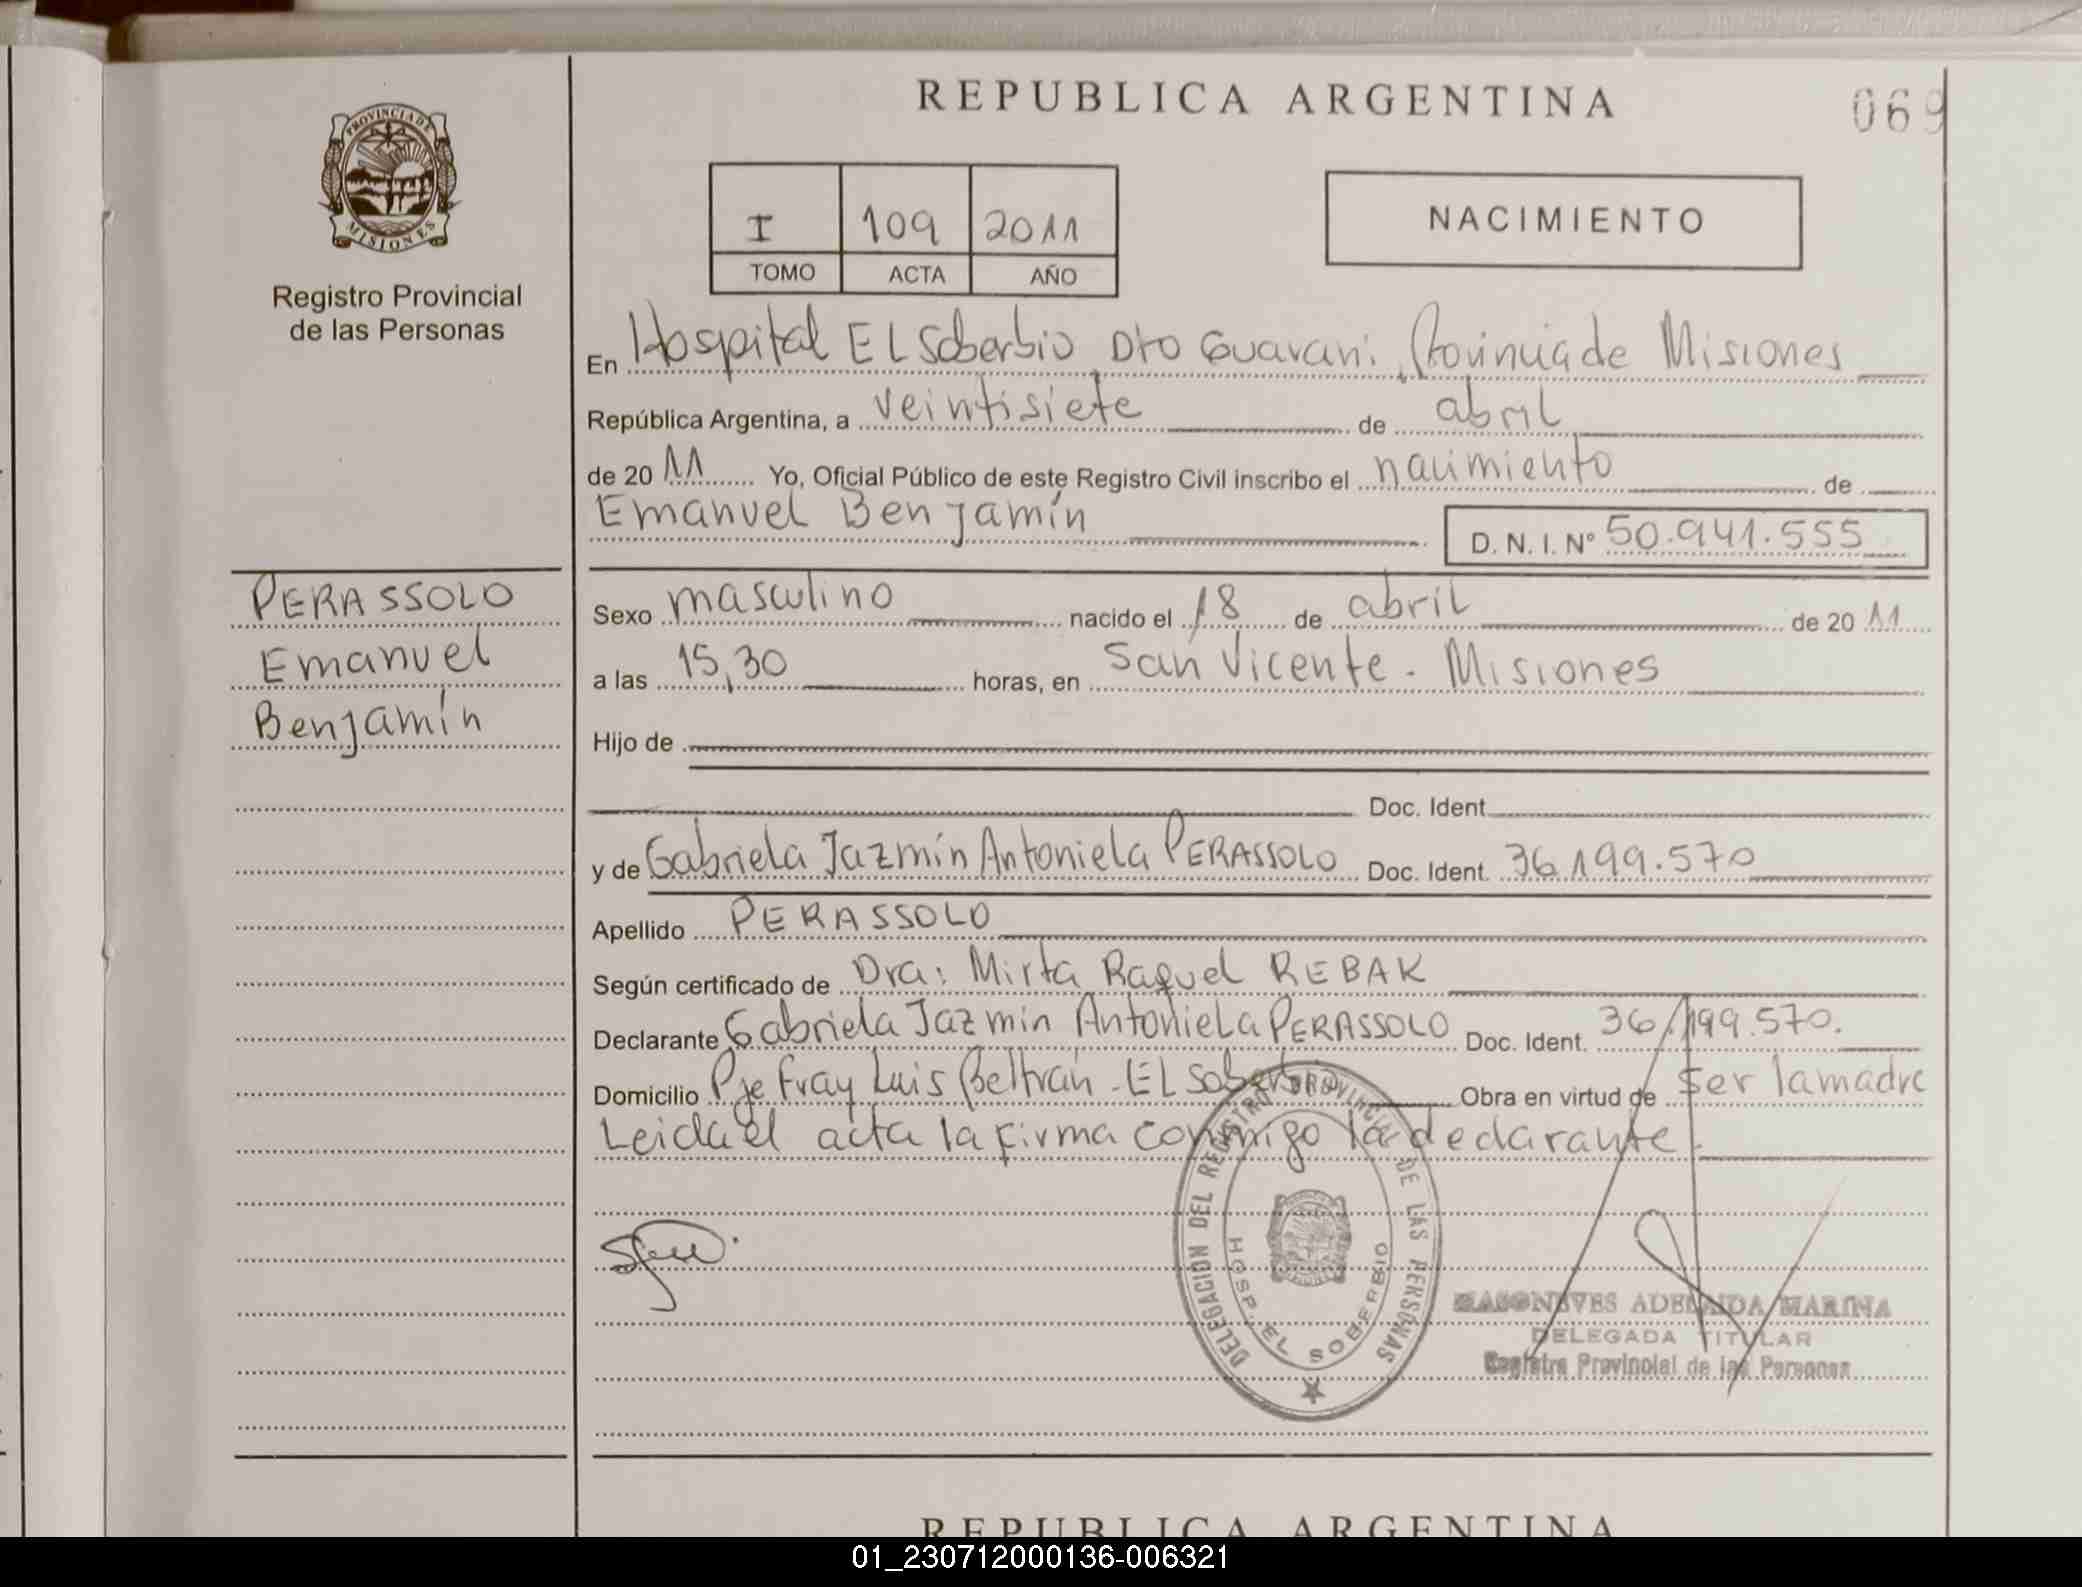 REPUBLICA ARGENTINA
069
PROVINCIA DE
MISIONES
Registro Provincial
de las Personas
I 109 2011
TOMO ACTA AÑO
NACIMIENTO
En Hospital EL Soberbio Dto Guarani, Provincia de Misiones
República Argentina, a veintisiete de abril
de 2011 Yo, Oficial Público de este Registro Civil inscribo el nacimiento de
Emanuel Benjamín D. N. I. Nº 50.941.555
PERASSOLO
Emanuel
Benjamín
Sexo masculino nacido el 18 de abril de 2011
a las 15,30 horas, en San Vicente - Misiones
Hijo de
Doc. Ident
y de Gabriela Jazmín Antoniela PERASSOLO Doc. Ident. 36.199.570
Apellido PERASSOLO
Según certificado de Dra: Mirta Raquel REBAK
Declarante Gabriela Jazmin Antoniela PERASSOLO Doc. Ident. 36.199.570.
Domicilio Pje Fray Luis Beltrán - EL Soberbio Obra en virtud de ser la madre
Leida el acta la firma conmigo la declarante.
DELEGACION DEL REGISTRO PROVINCIAL DE LAS PERSONAS
HOSP. EL SOBERBIO
ADELAIDA MARINA
DELEGADA TITULAR
Registro Provincial de las Personas
REPUBLICA ARGENTINA
01_230712000136-006321